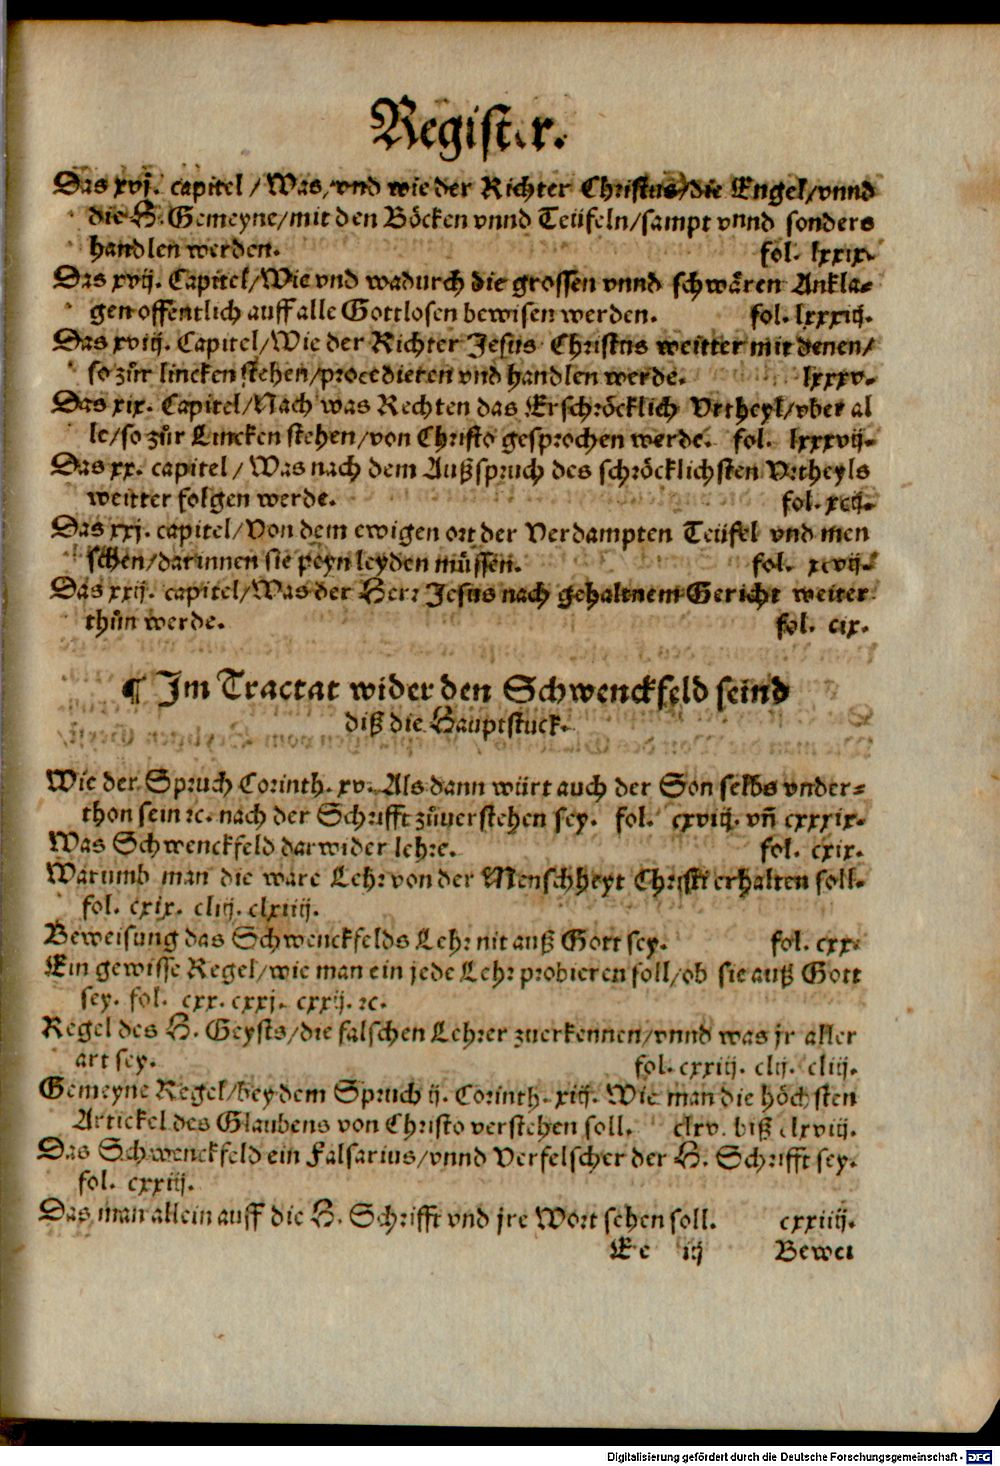 Register.
Das xvj. capitel / Was / vnd wie der Richter Christus / die Engel / vnnd
die H. Gemeyne / mit den Böcken vnnd Teüfeln / sampt vnnd sonders
handlen werden. fol. lxxix.
Das xvij. Capitel / Wie vnd wadurch die grossen vnnd schwären Ankla-
gen offentlich auff alle Gottlosen bewisen werden. fol. lxxxiij.
Das xviij. Capitel / Wie der Richter Jesus Christus weitter mit denen /
so zůr lincken stehen / procedieren vnd handlen werde. lxxxv.
Das xix. Capitel / Nach was Rechten das Erschröcklich Vrtheyl / vber al
le / so zůr Lincken stehen / von Christo gesprochen werde. fol. lxxxvij.
Das xx. capitel / Was nach dem Außspruch des schröcklichsten Vrtheyls
weitter folgen werde. fol. xcij.
Das xxj. capitel / Von dem ewigen ort der Verdampten Teüfel vnd men
schen / darinnen sie peyn leyden müssen. fol. xcvij.
Das xxij. capitel / Was der Herr Jesus nach gehaltnem Gericht weiter
thůn werde. fol. cix.
¶ Im Tractat wider den Schwenckfeld seind
diß die Hauptstuck.
Wie der Spruch Corinth. xv. Als dann würt auch der Son selbs vnder-
thon sein ꝛc. nach der Schrifft zůuerstehen sey. fol. cxviij. vñ cxxxix.
Was Schwenckfeld darwider lehre. fol. cxix.
Warumb man die ware Lehr von der Menschheyt Christi erhalten soll.
fol. cxix. cliij. clxiiij.
Beweisung das Schwenckfelds Lehr nit auß Gott sey. fol. cxx.
Ein gewisse Regel / wie man ein jede Lehr probieren soll / ob sie auß Gott
sey. fol. cxx. cxxj. cxxij. ꝛc.
Regel des H. Geysts / die falschen Lehrer zuerkennen / vnnd was jr aller
art sey. fol. cxxiij. clij. cliij.
Gemeyne Regel / bey dem Spruch ij. Corinth. xiij. Wie man die höchsten
Artickel des Glaubens von Christo verstehen soll. clxv. biß clxviij.
Das Schwenckfeld ein Falsarius / vnnd Verfelscher der H. Schrifft sey.
fol. cxxiij.
Das man allein auff die H. Schrifft vnd jre Wort sehen soll. cxxiiij.
Ee iij Bewei
Digitalisierung gefördert durch die Deutsche Forschungsgemeinschaft - DFG